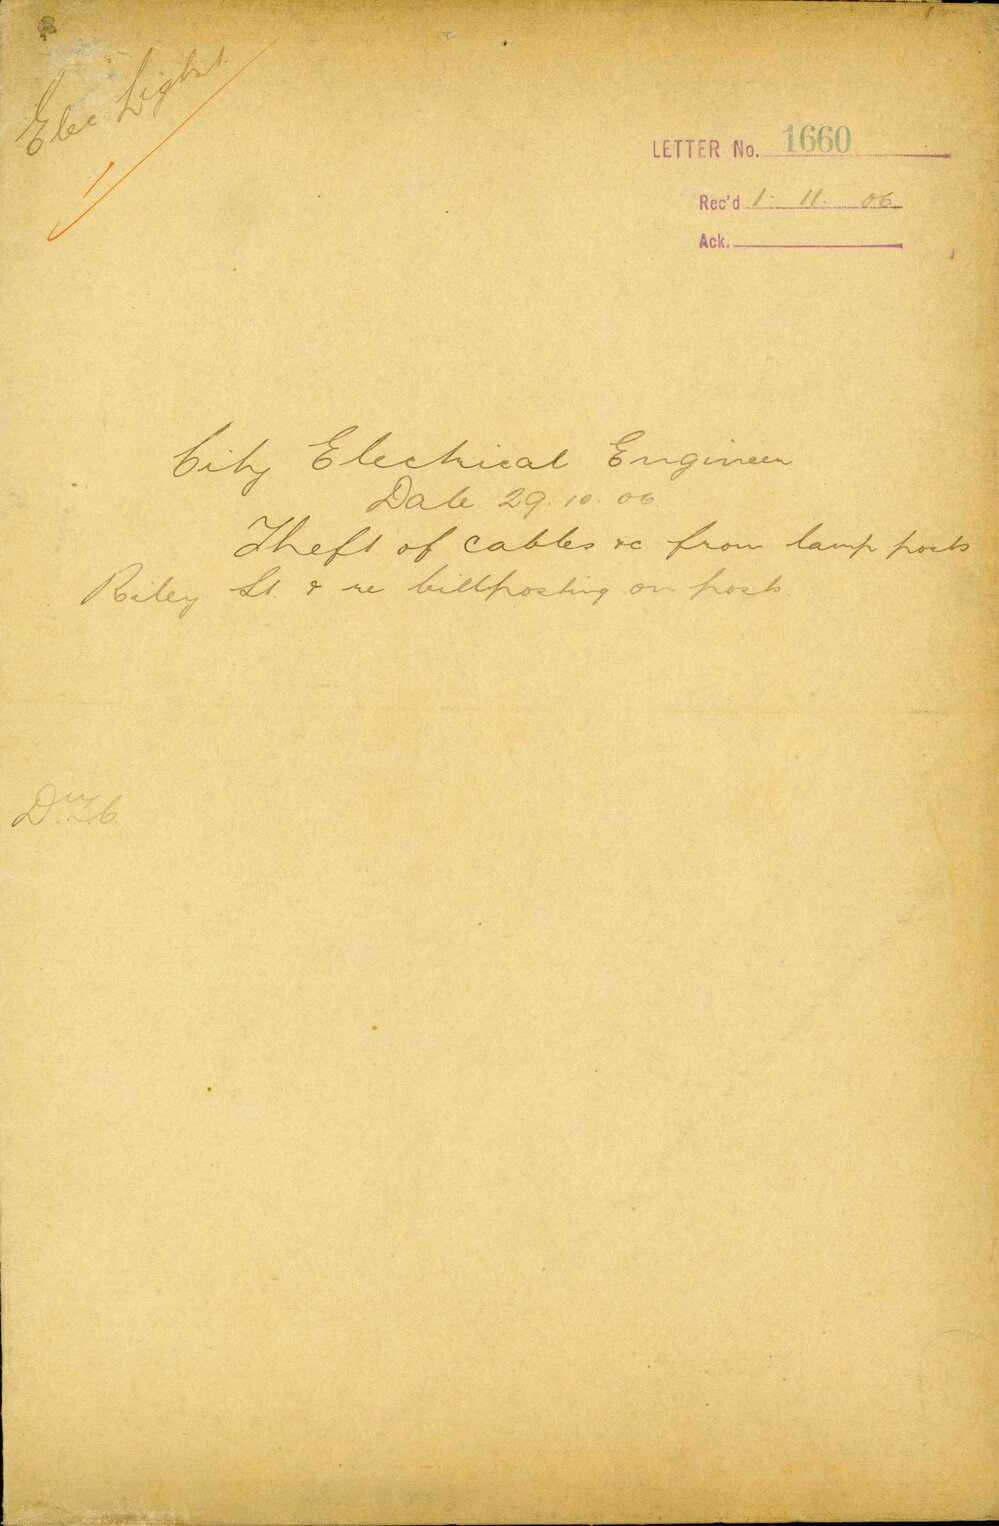 Elec Light
LETTER No. 1660
Rec'd 1. 11. 06
Ack.
City Electrical Engineer
Date 29.10.06
Theft of cables &c from lamp posts
Riley St. & re billposting on posts.